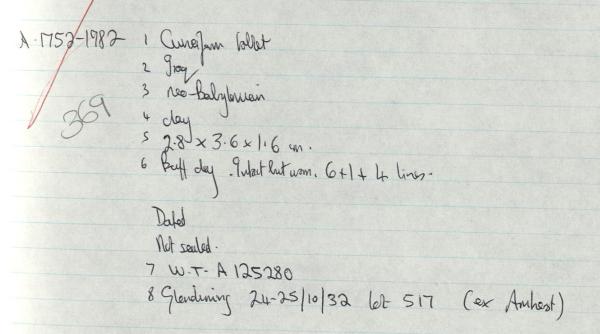 A.1752-1982 1 Cuneiform tablet
2 Iraq
3 neo-Babylonian
4 clay
369
5 2.8 x 3.6 x 1.6 cm.
6 Buff clay. Intact but worn. 6+1+4 lines.
Dated
Not sealed.
7 W.T- A 125280
8 Glendining 24-25/10/32 lot 517 (ex Amherst)